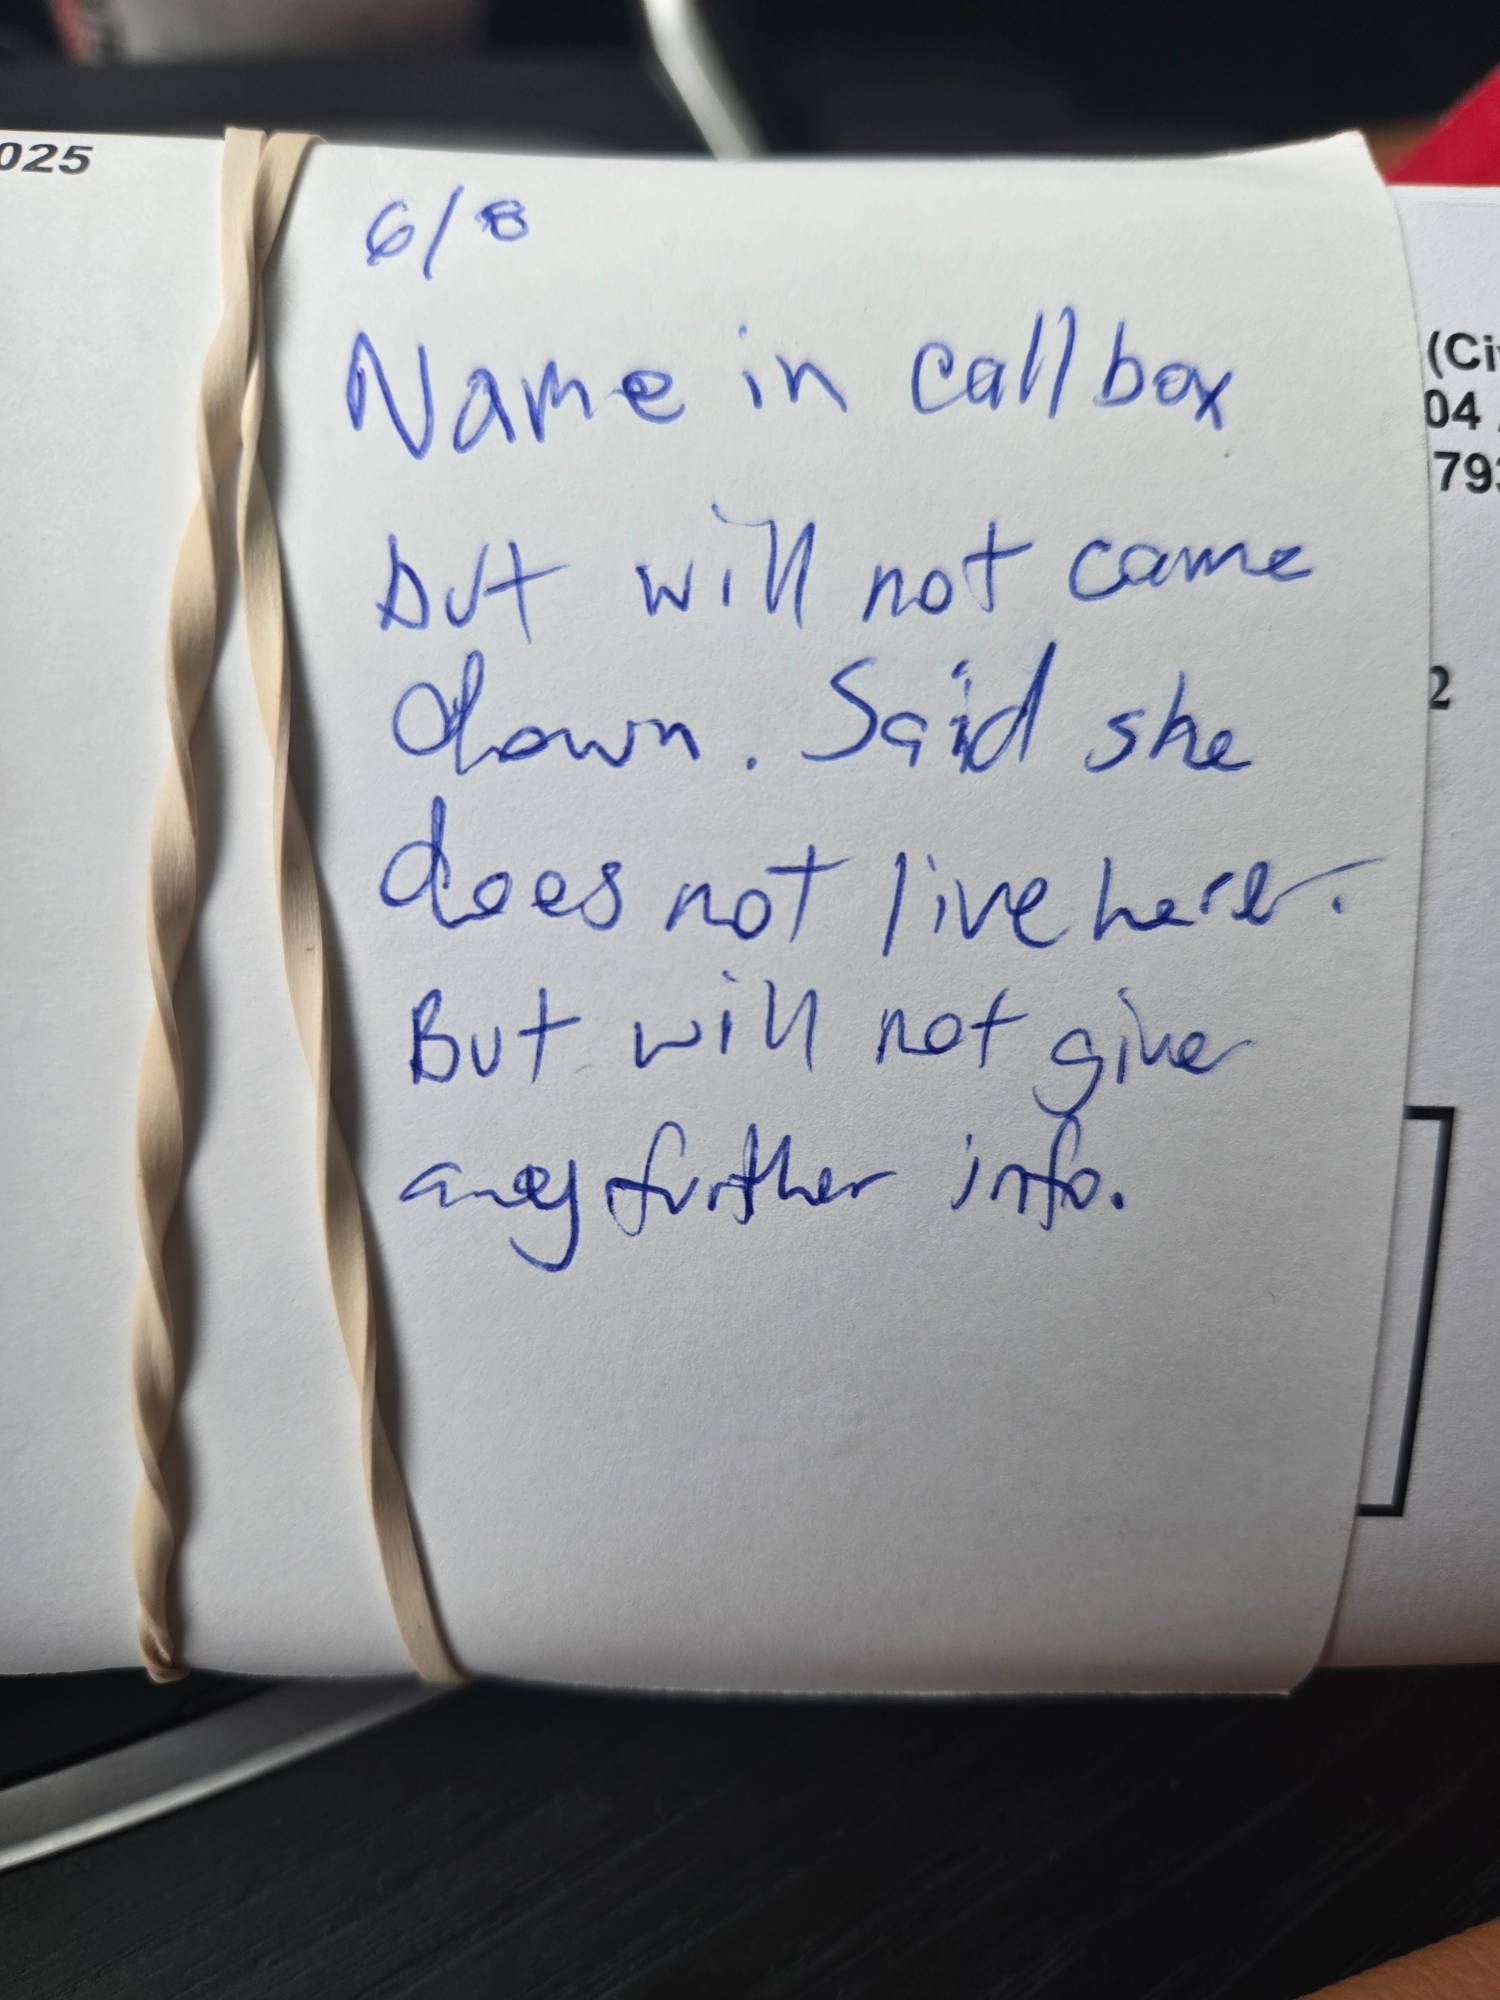 025
6/8
Name in callbox
but will not came
down. Said she
does not live here.
But will not give
any further info.
(Ci
04
793
2